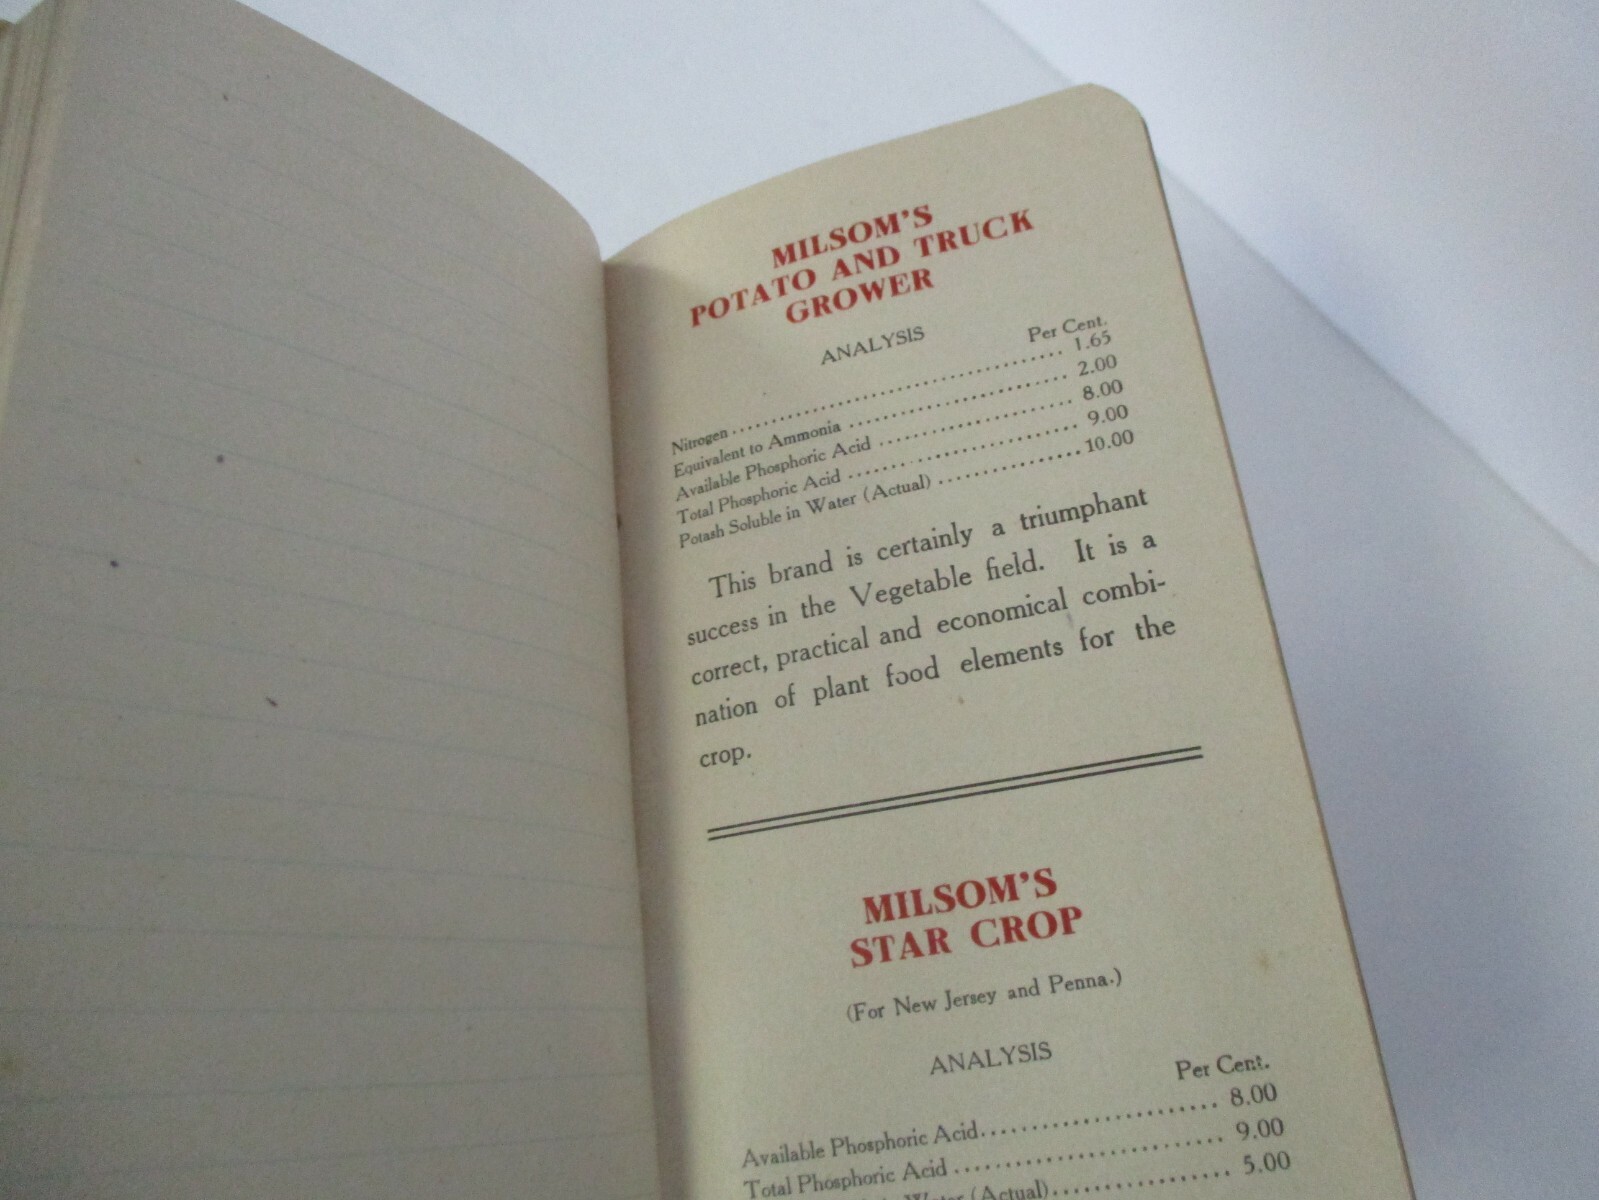 MILSOM'S
POTATO AND TRUCK
GROWER
ANALYSIS
Per Cent.
Nitrogen ........................................ 1.65
Equivalent to Ammonia ........................... 2.00
Available Phosphoric Acid ....................... 8.00
Total Phosphoric Acid ........................... 9.00
Potash Soluble in Water (Actual) ................ 10.00
This brand is certainly a triumphant
success in the Vegetable field. It is a
correct, practical and economical combi-
nation of plant food elements for the
crop.
MILSOM'S
STAR CROP
(For New Jersey and Penna.)
ANALYSIS
Per Cent.
Available Phosphoric Acid ........................ 8.00
Total Phosphoric Acid ........................... 9.00
Water (Actual) ........................ 5.00